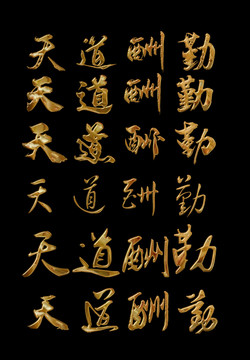 天道酬勤
天道酬勤
天道酬勤
天道酬勤
天道酬勤
天道酬勤